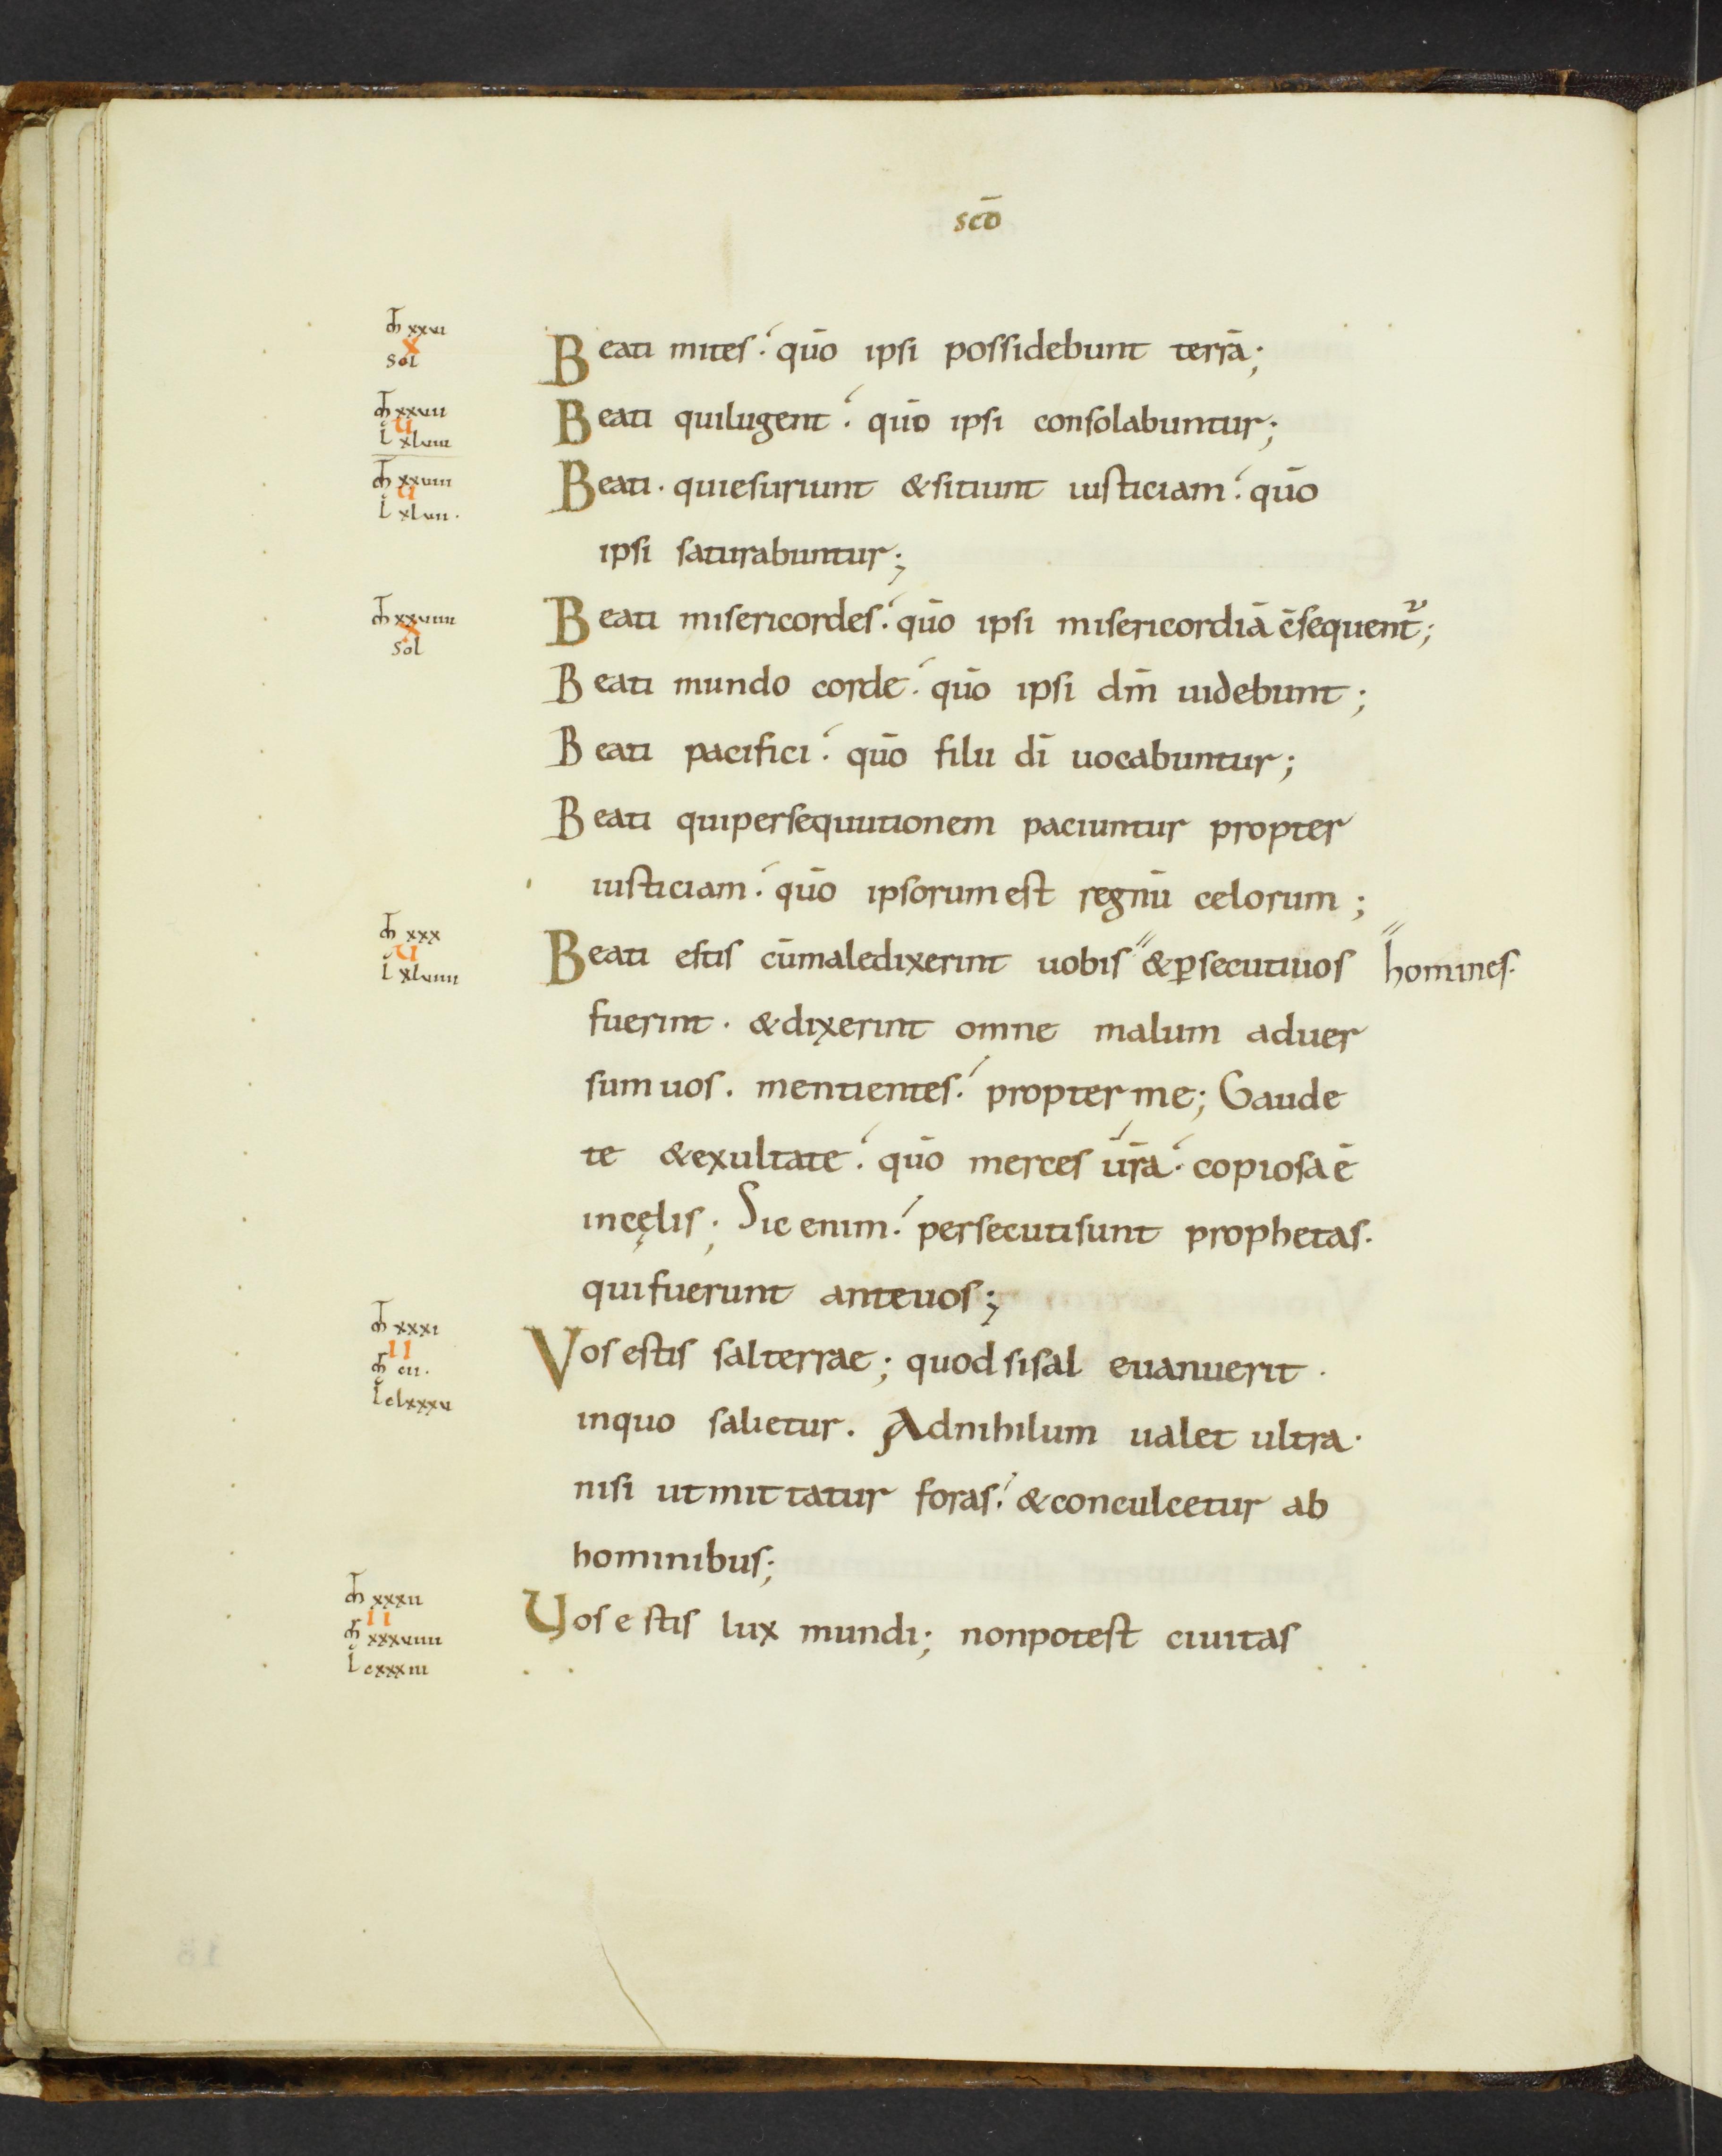 scō
m̄ xxvi
x
sol
Beati mites. quō ipsi possidebunt terrā;
m̄ xxvii
u
l xlviii
Beati quilugent. quō ipsi consolabuntur;
m̄ xxviii
u
l xlvii.
Beati. quiesuriunt & sitiunt iusticiam. quō
ipsi saturabuntur;
m̄ xxviiii
x
sol
Beati misericordes. quō ipsi misericordiā c̄sequent᷑;
Beati mundo corde. quō ipsi dm̄ uidebunt;
Beati pacifici. quō filii dī uocabuntur;
Beati quipersequutionem paciuntur propter
iusticiam. quō ipsorum est regnū celorum;
m̄ xxx
u
l xlviiii
Beati estis cūmaledixerint uobis " & ꝑsecutiuos " homines.
fuerint. & dixerint omne malum aduer
sum uos. mentientes. propter me; Gaude
te & exultate. quō merces ūrā. copiosa ē
incęlis; Sic enim. persecutisunt prophetas.
quifuerunt anteuos;
m̄ xxxi
II
m̄ cii.
l clxxxv
Vos estis salterrae; quodsisal euanuerit.
inquo salietur. Adnihilum ualet ultra.
nisi utmittatur foras. & conculcetur ab
hominibus;
m̄ xxxii
II
m̄ xxxviiii
l cxxxiii
Vos estis lux mundi; nonpotest ciuitas